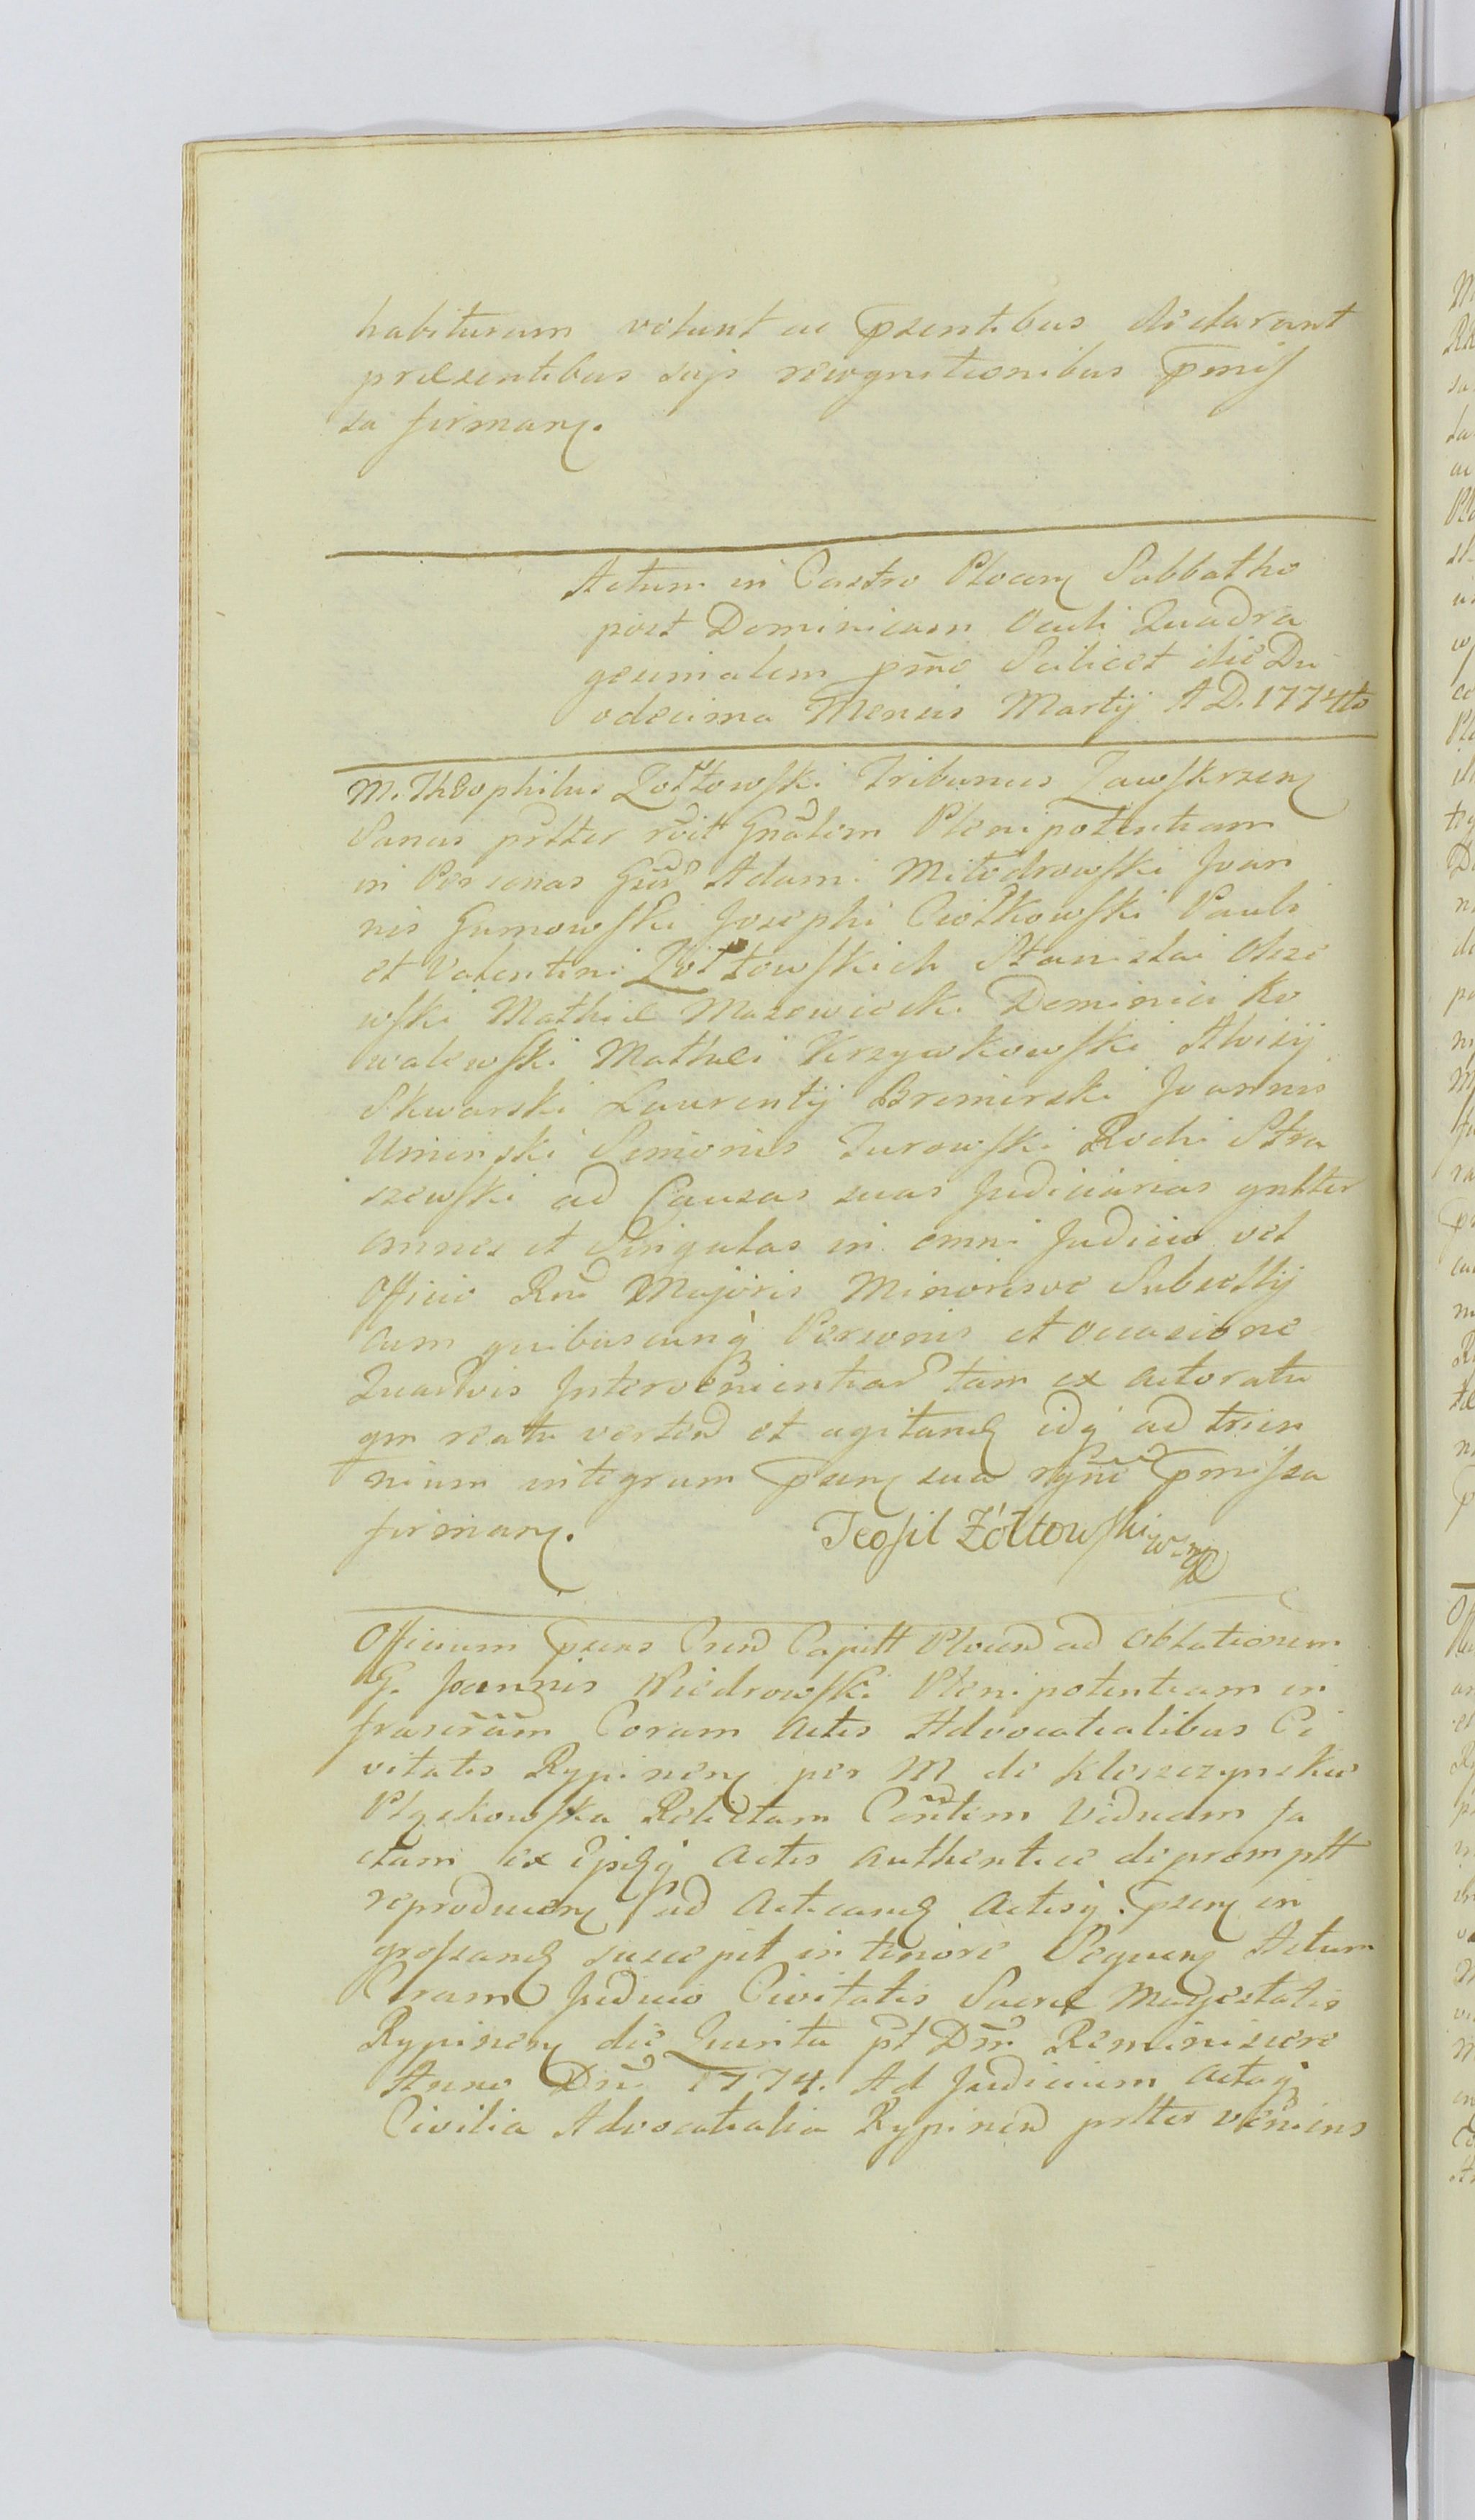 habituram volunt ac Pzentibus declarant
præsentibus sujs recognitionibus Pmiſ
sa firman.
Actum in Castro Plocen Sabbatho
post Dominicam Oculi Quadra
gesimalem pmo Scilicet die Du
odecima Mensis Martij A D. 1774to
M. Theophilus Żołtowſki Tribunus Zawſkrzen
Sanus prltter rčit Gnãlem Plenipotentiam
in Personas Gnr Adami Miłodrowſki Joan
nis Gumowſki Josephi Ciółkowſki Pauli
et Valentini Żołtowſkich Stanislai Olsze
wſki Mathiæ Mazowiecki Dominici Ko
walewſki Mathæi Krzywkowſki Aloisij
Skwarski Laurentij Bromirski Joannis
Uminski Simonis Turowſki Rochi Stra
szewſki ad Causas suas Judiciarias gnltter
omnes et Singulas in omni Judicio vel
Officio Rni Majoris Minorisve Subsellij
cum quibuscunq Personis et occasione
Quarvis Intervenientiar tam ex actoratu
qm reatu verten et agitand idq ad trien
nium integrum Pzen sua rgne Pmiſsa
firman. Teofil Żółtowſki w. mp
Officium Pzens Cren Capitt Plocen ad oblationem
G. Joannis Niedrowſki Plenipotentiam in
frascriam Coram Actis Advocatialibus Ci
vitatis Rypinen per M de Kleszczynskie
Pląskowſka Relictam Conltem Viduam fa
ctam ex ijsdq Actis authentice depromptt
reproducen ad acticand Actisq Pzen in
groſsand suscepit in tenore Sequen Actum
Coram Judicio Civitatis Sacræ Majestatis
Rypinen die Quinta pt Dm Reminiscere
Anno Dni 1774. Ad Judicium actaq
Civilia Advocatialia Rypinen prltter veniens